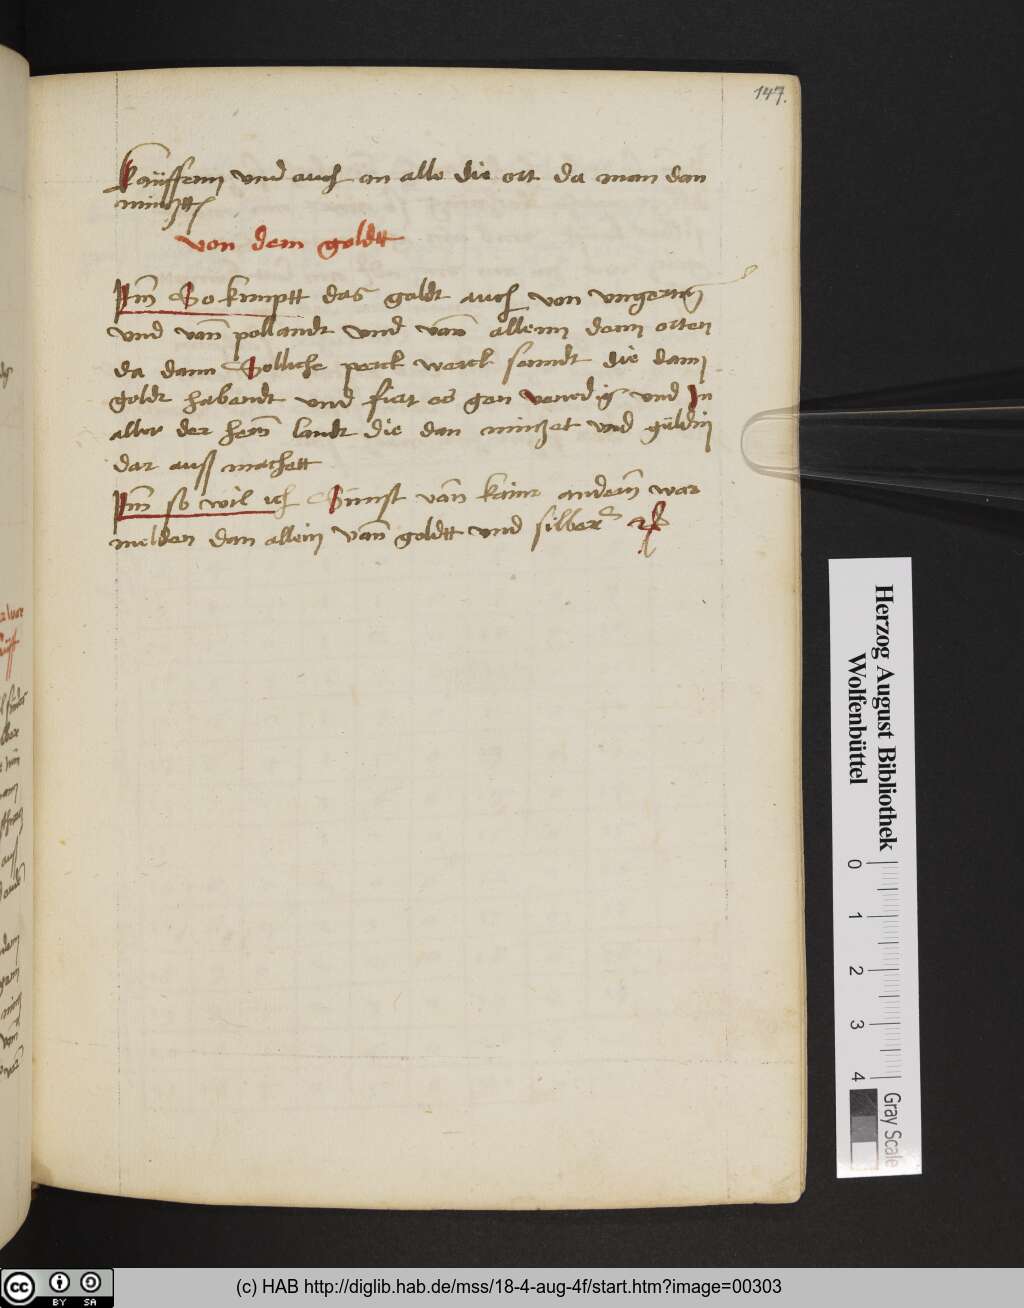 147.
kauffenn vnd auch an alle die ort da man dan
mintzett
von dem goldtt
Itm So kumptt das goldt auch von vngerenn
vnd vann pollandt vnd vann allenn denn orten
da dann Solliche perck werck senndt die dann
goldt habendt vnd fiert es gen venedig vnd In
aller der hern landt die dan mintzet vnd guldin
dar auss machett
Itm so wil ich Sunst vann kainr andern war
melden dan allein vann goldtt vnd silber
Herzog August Bibliothek
Wolfenbüttel
0 1 2 3 4
Gray Scale
cc BY SA
(c) HAB http://diglib.hab.de/mss/18-4-aug-4f/start.htm?image=00303